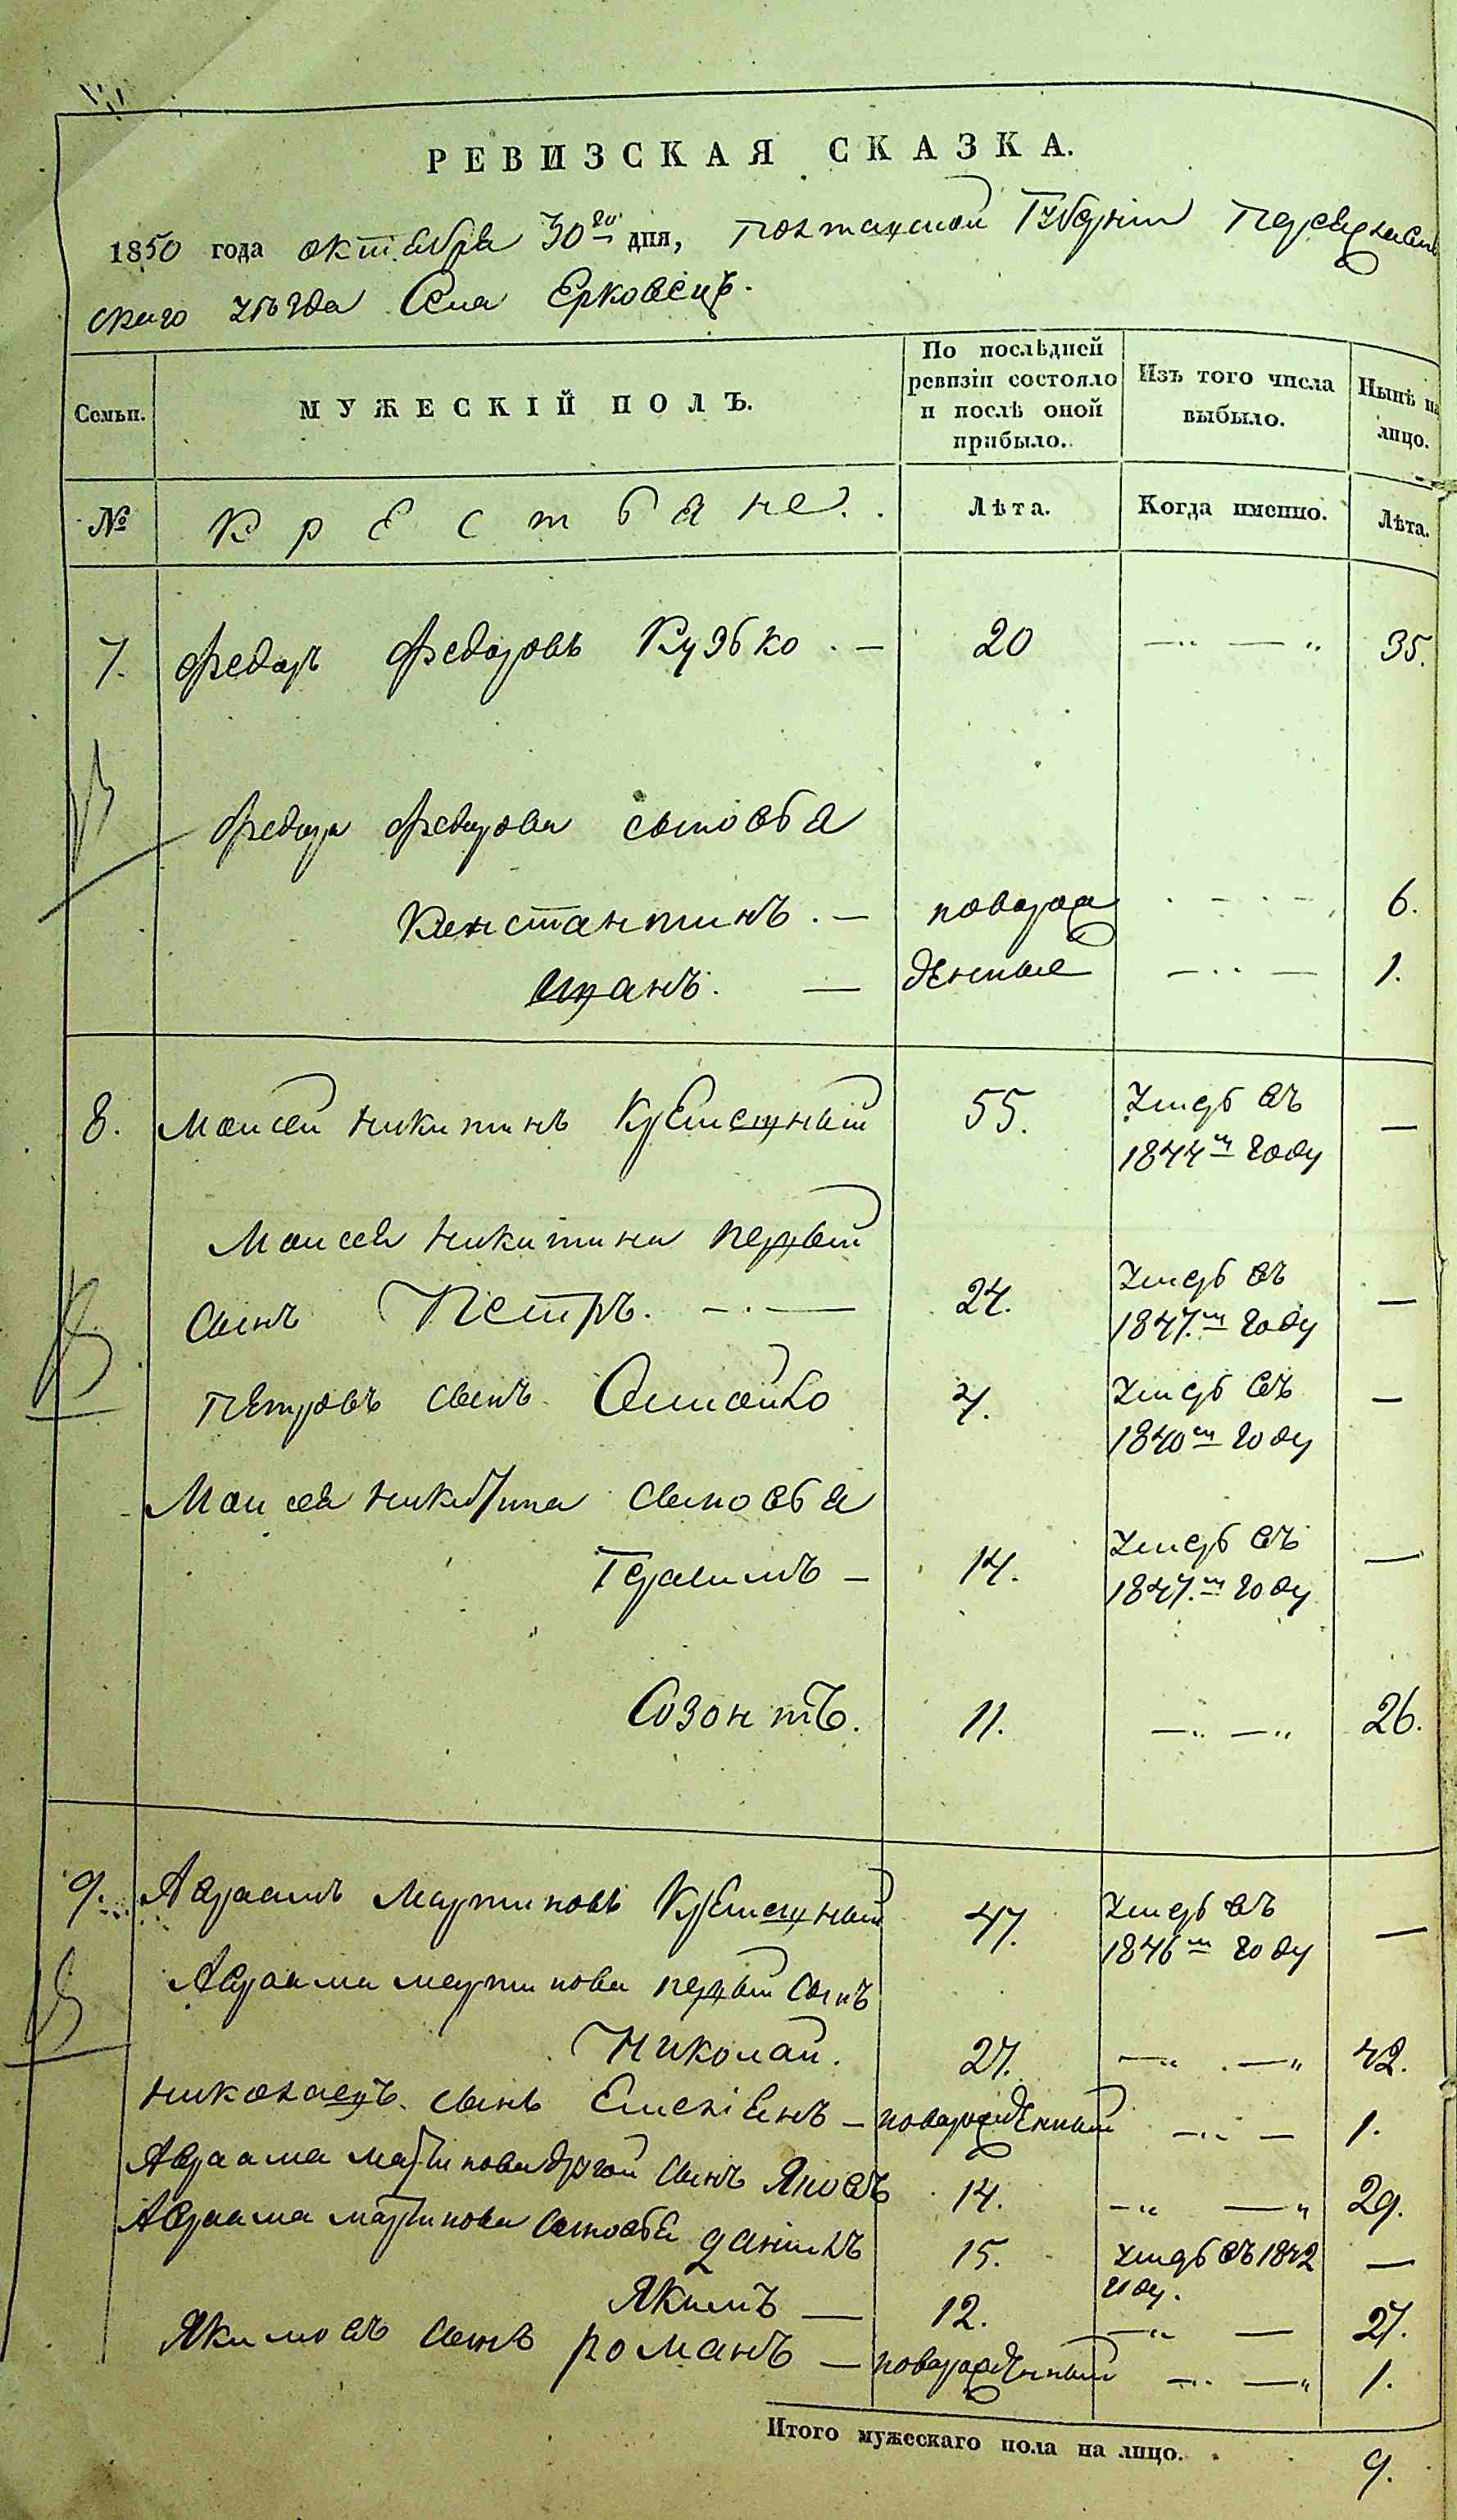 РЕВИЗСКАЯ СКАЗКА.
1850 года октября 30го дня, Полтавской Губерніи Переяслав
скаго уѣзда Села Ерковецъ.
Семьи. МУЖЕСКІЙ ПОЛЪ. По послѣдней ревизіи состояло и послѣ оной прибыло. Изъ того числа выбыло. Нынѣ на лицо.
№ Крестьяне. Лѣта. Когда именно. Лѣта.
7. Федоръ Федоровъ Кузько. — 20 — " — " 35.
Федора Федорова сыновья
Константинъ. — новорож 6.
Иванъ. — денные — " — 1.
8. Моисей Никитинъ 55. Умеръ въ
1844м году —
Моисея Никитина первый
сынъ Петръ. — . — 24. Умеръ въ
1847.м году —
Петровъ сынъ 4. Умеръ въ
1840м году —
Моисея Никитина сыновья
Герасимъ — 14. Умеръ въ
1847.м году —
Созонтъ. 11. — " — " 26.
9. Авраамъ Мартиновъ 47. Умеръ въ
1846м году —
Авраама Мартинова первый сынъ
Николай. 27. — " — " 42.
Николаевъ сынъ — новорожденный — " — 1.
Авраама Мартинова другой сынъ Яковъ 14. — " — " 29.
Авраама Мартинова сыновья Данилъ 15. Умеръ въ 1842
году. —
Якимъ — 12. — " — 27.
Якимовъ сынъ Романъ — новорожденный — " — " 1.
Итого мужескаго пола на лицо. 9.